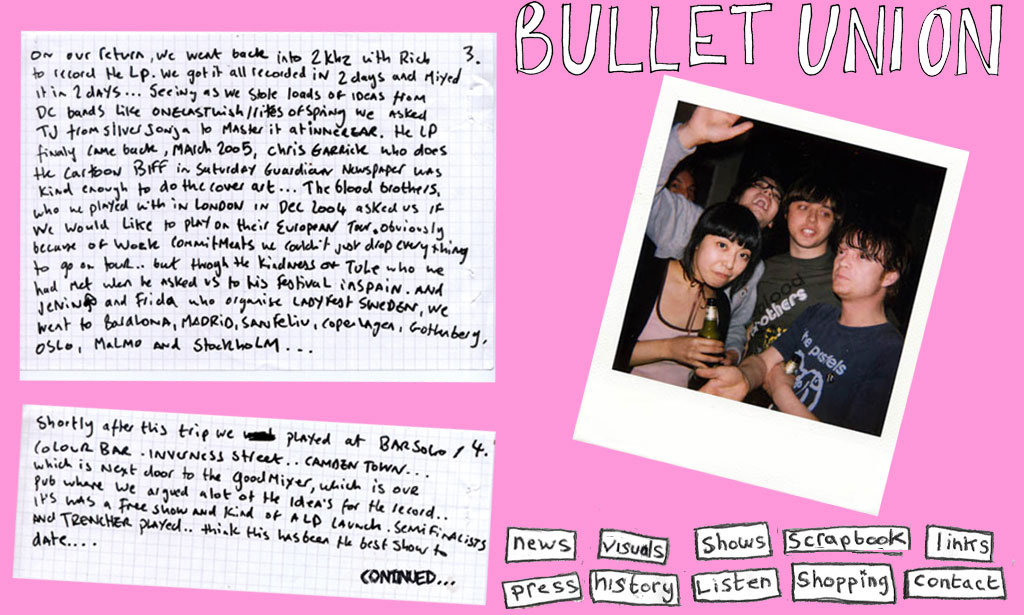 BULLET UNION
On our return, we went back into 2khz with Rich 3.
to record the LP. We got it all recorded in 2 days and Mixed
it in 2 days... Seeing as we stole loads of ideas from
DC bands like ONELASTWISH/rites of spring we asked
TJ from silver sonja to Master it at INNEREAR. the LP
finaly came back, MARCH 2005, Chris GARRICK who does
the cartoon BIFF in Saturday Guardian Newspaper was
kind enough to do the cover art... The blood brothers,
who we played with in LONDON in Dec 2004 asked us if
We would like to play on their European Tour. obviously
because of work commitments we couldn't just drop everything
to go on tour.. but throgh the kindness of who we
had met wen he asked us to his festival in SPAIN. AND
and Frida who organise LADYFEST SWEDEN, we
went to MADRID, SANFELIU, Copenhagen, Gothenberg,
OSLO, MALMO and Stockholm...
Shortly after this trip we played at BARSOLO / 4.
COLOUR BAR. INVERNESS street.. CAMDEN TOWN...
which is next door to the GoodMixer, which is our
pub where we argued alot of the Idea's for the record..
it's was a free show and kind of A LP launch. Semifinalists
AND TRENCHER played.. think this has been the best show to
date....
CONTINUED...
blood
brothers
the pastels
news visuals Shows Scrapbook links
press history Listen Shopping contact